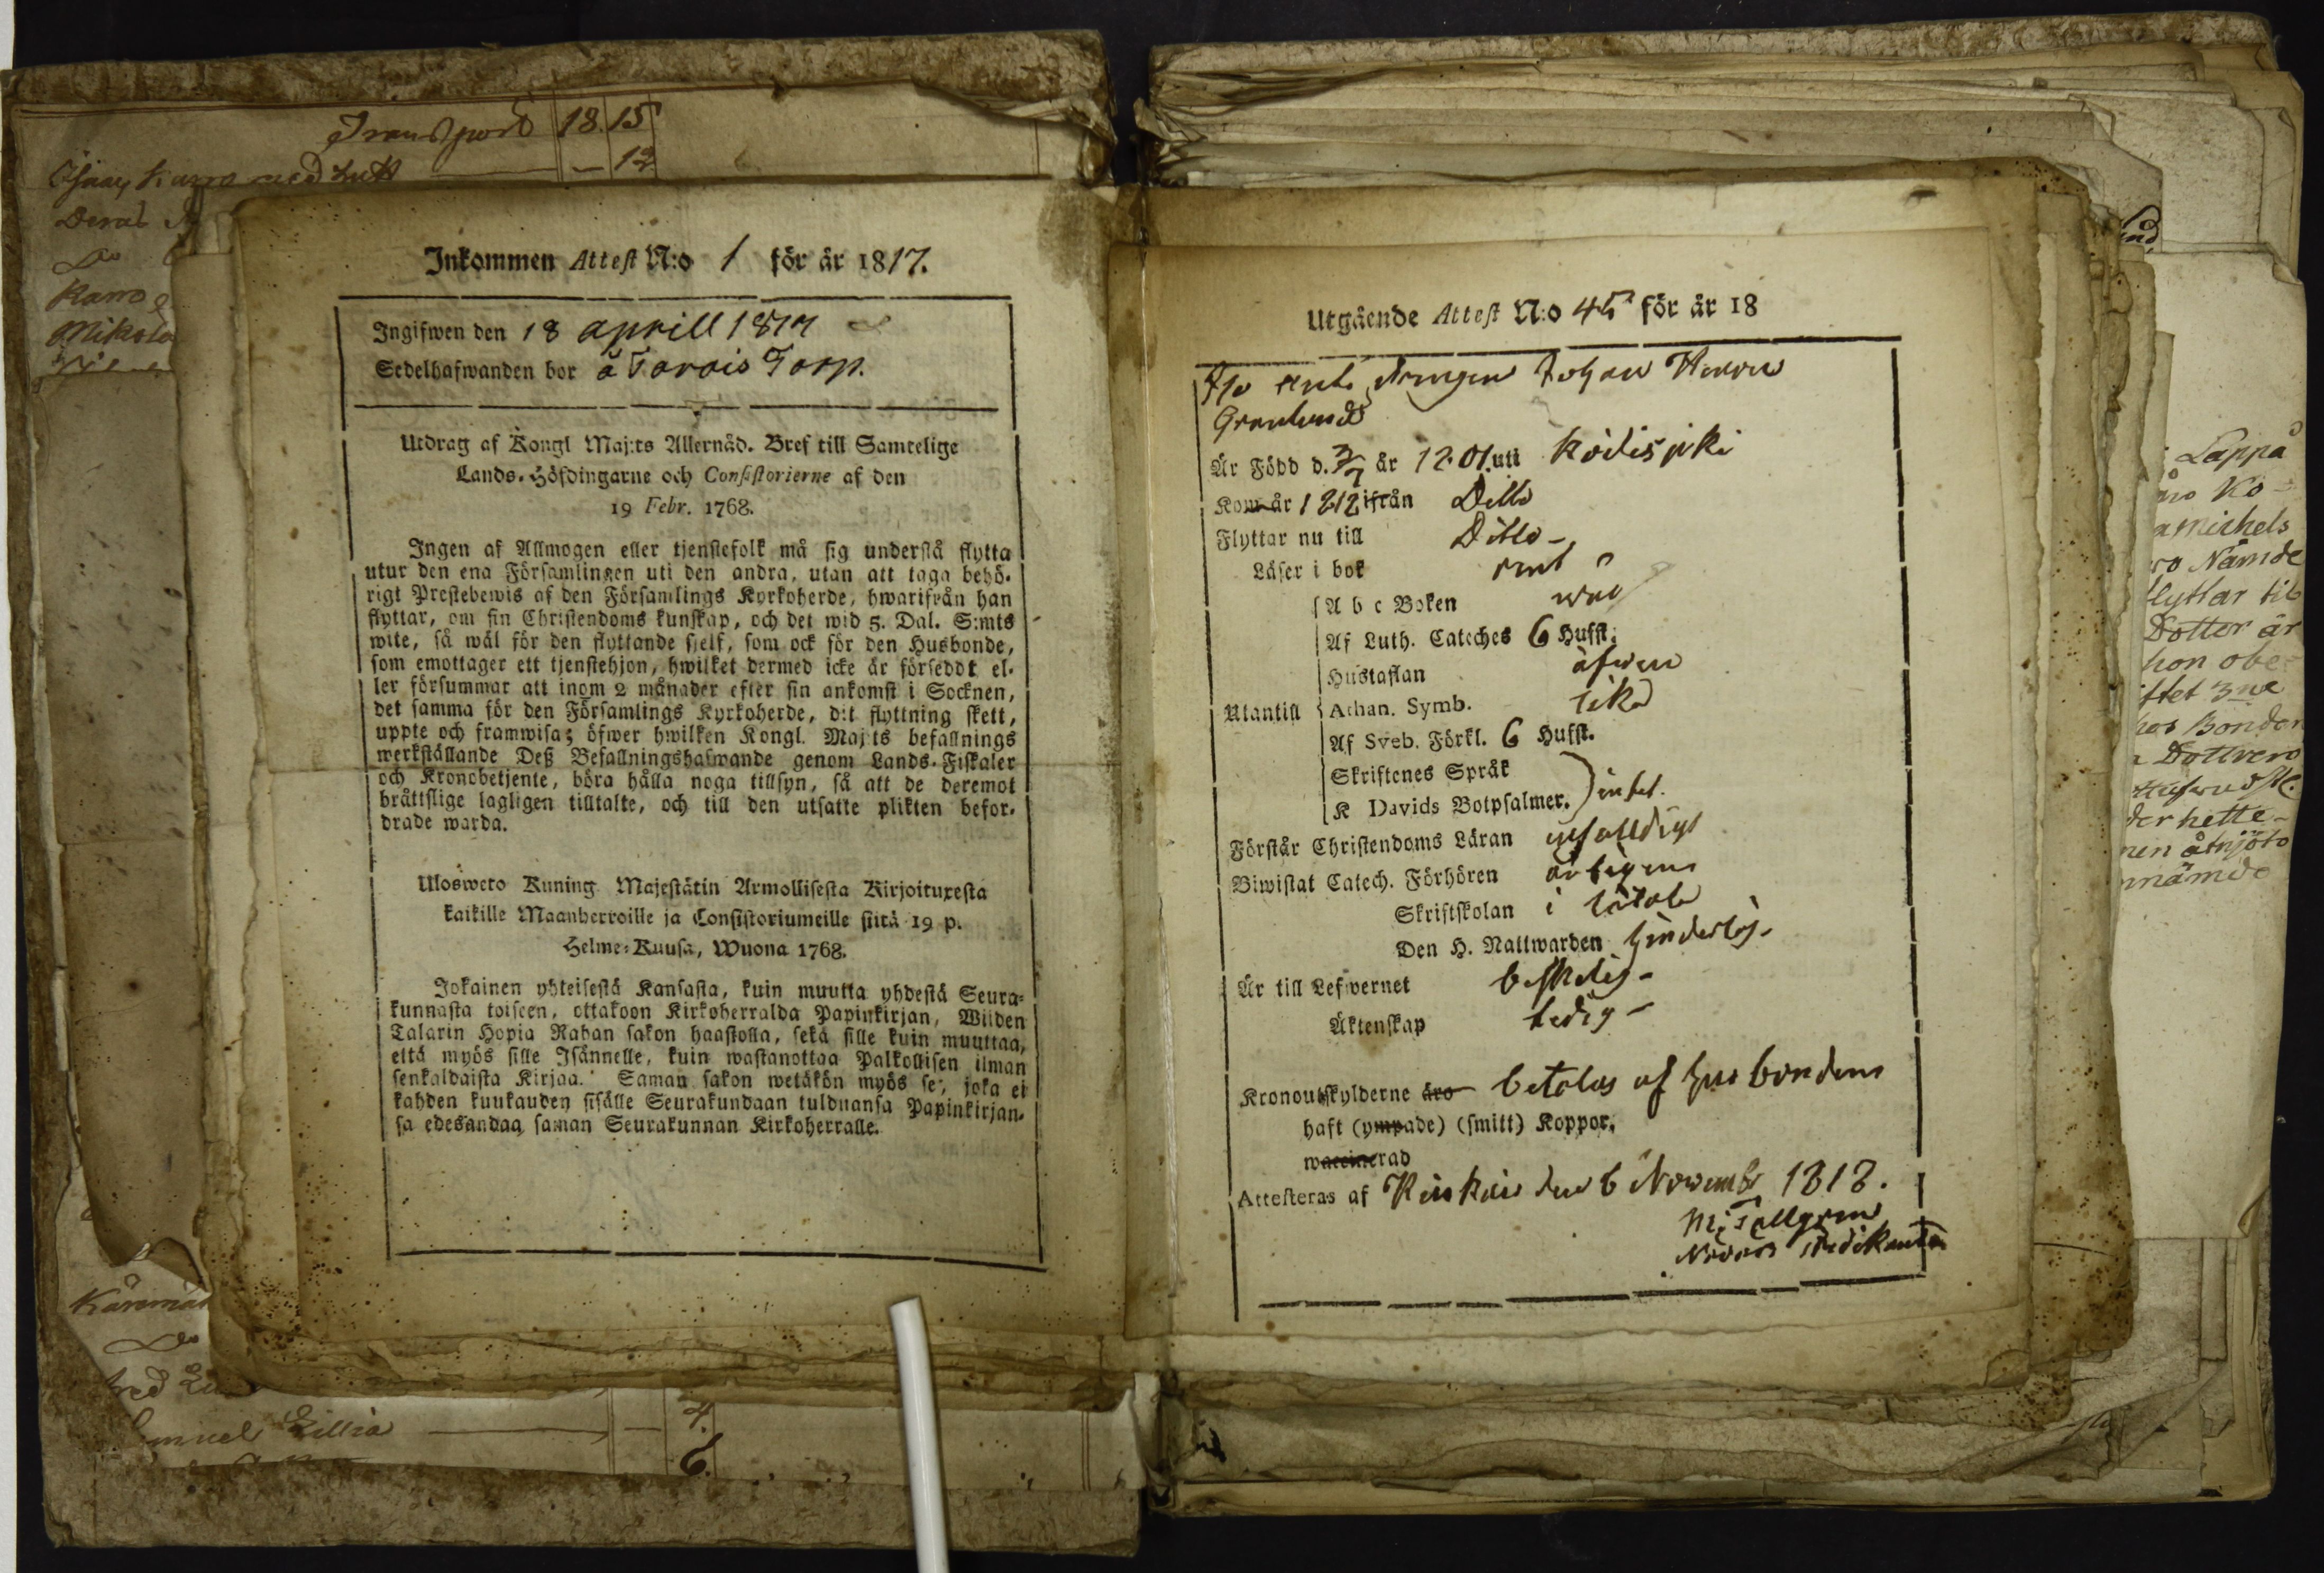 Transport 18. 15
— 12
Deral
Do
Karro
Mikola
Inkommen Attest N:o 1 för år 1817.
Ingifwen den 18 aprill 1817
Sedelhafwanden bor å Torois Torp.
Utdrag af Kongl Maj:ts Allernåd. Bref till Samtelige
Lands-Höfdingarne och Consistorierne af den
19 Febr. 1768.
Ingen af Allmogen eller tjenstefolk må sig understå flytta
utur den ena Församlingen uti den andra, utan att taga behö-
rigt Prestebewis af den Församlings Kyrkoherde, hwarifrån han
flyttar, om sin Christendoms kunskap, och det wid 5. Dal. S:mts
wite, så wäl för den flyttande sjelf, som ock för den Husbonde,
som emottager ett tjenstehjon, hwilket dermed icke är förseddt el-
ler försummar att inom 2 månader efter sin ankomst i Socknen,
det samma för den Församlings Kyrkoherde, dit flyttning skett,
uppte och framwisa; öfwer hwilken Kongl. Maj:ts befallnings
werkställande Deß Befallningshafwande genom Lands-Fiskaler
och Kronobetjente, böra hålla noga tillsyn, så att de deremot
bråttslige lagligen tilltalte, och till den utsatte plikten befor-
drade warda.
Ulosweto Kuning Majestätin Armollisesta Kirjoituxesta
kaikille Maanherroille ja Consistoriumeille siitä 19 p.
Helme-Kuusa, Wuona 1768.
Jokainen yhteisestä Kansasta, kuin muutta yhdestä Seura-
kunnasta toiseen, ottakoon Kirkoherralda Papinkirjan, Wiiden
Talarin Hopia Rahan sakon haastolla, sekä sille kuin muuttaa,
että myös sille Isännelle, kuin wastanottaa Palkollisen ilman
senkaldaista Kirjaa. Saman sakon wetäkön myös se, joka ei
kahden kuukauden sisälle Seurakundaan tulduansa Papinkirjan-
sa edesandaa saman Seurakunnan Kirkoherralle.
Do
Samuel Lillia — 4.
6.
Utgående Attest N:o 45 för år 18
Drängen Johan Henric
Grönlund
Är Född d. 3/7 år 1801. uti Kodisjoki
Kom år 1812 ifrån Ditto
Flyttar nu till Ditto -
Läser i bok rent
A b c Boken wäl
Af Luth. Cateches 6 Hufst.
Hustaflan äfwen
Utantill Athan. Symb. lika
Af Sveb. Förkl. 6 Hufst.
Skriftenes Språk
K Davids Botpsalmer. intet.
Förstår Christendoms Läran enfalldigt
Biwistat Catech. Förhören årligen
Skriftskolan i
Den H. Nattwarden hinderlös -
Är till Lefwernet beskedlig -
Äktenskap ledig -
Kronoutskylderne äro betalas af husbonden
haft (ympade) (smitt) Koppor.
waccinerad
Attesteras af den 6 Novembr 1818.
M. Tallgren
Lappå
Kö-
Michels
Nämde
flyttar til
Dotter är
hon obe-
3ne
hos Bonden
Dottrens
der hette-
åtnjöto
nämde